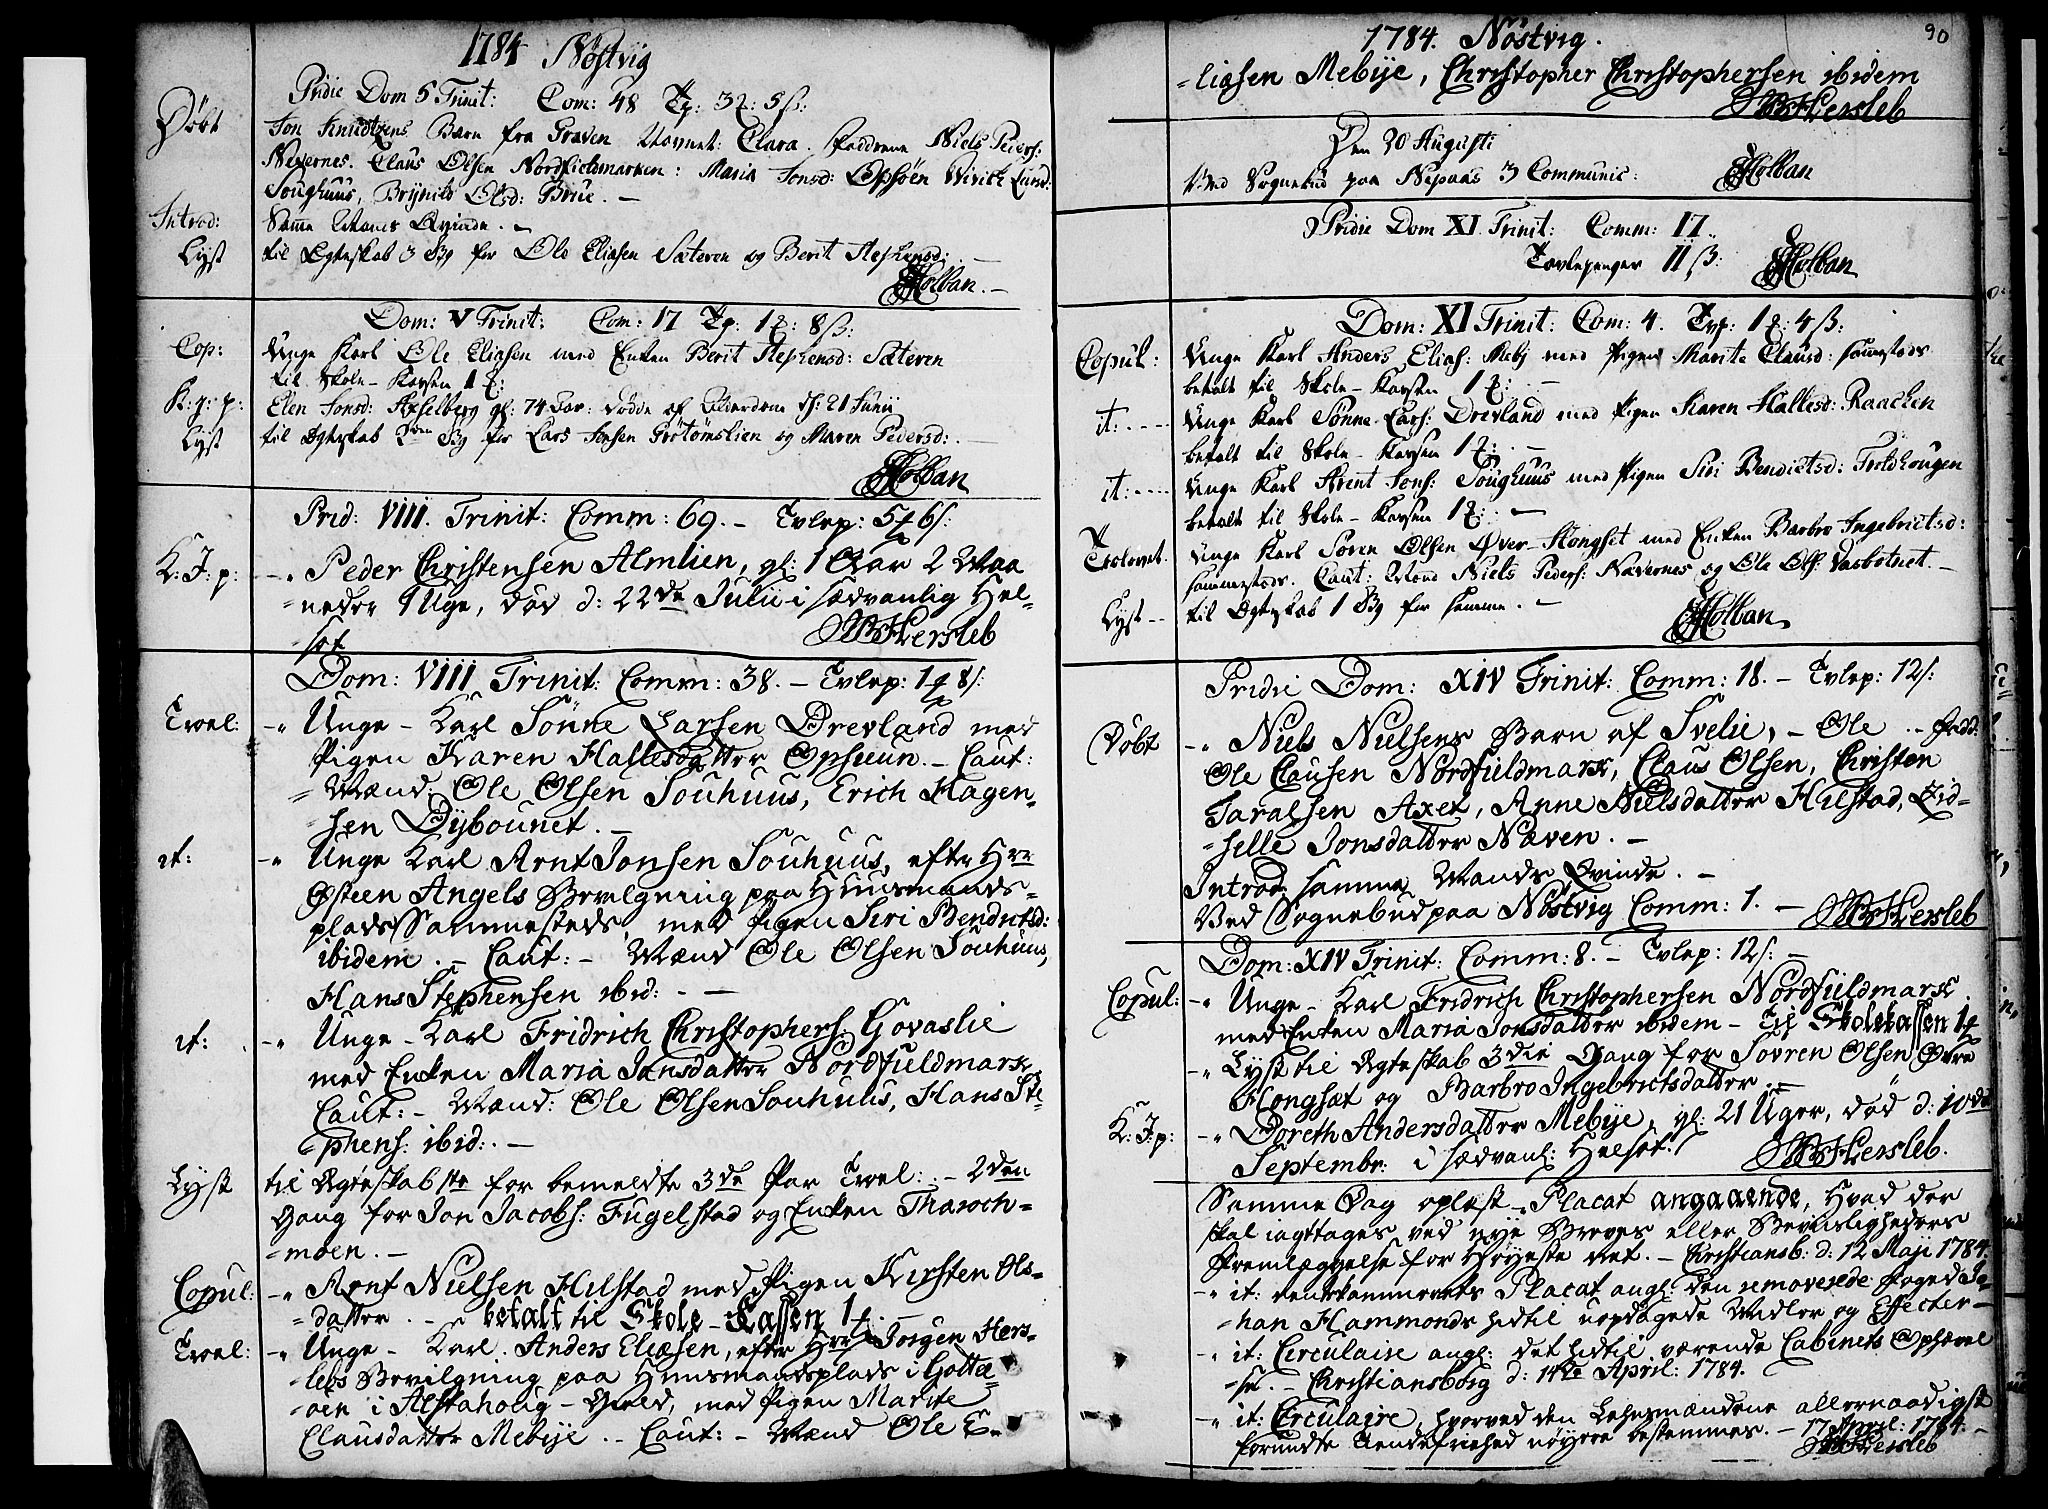 1784 Nöstvig
Pridie Dom 5 Trinit: Com: 48 Tp: 3 : 5 ß:
Döbt
Jon Knudtzens Barn fra Graven Navnet: Clara. Faddrene Niels Peders:
Nevernes. Claus Olsen Nordfieldmarken: Maria Jonsd: Opsöen
Souhuus, Brynild Olsd: Brue. —
Introd: Samme Mands Qvinde. —
Lyst til Egteskab 3 Gg for Ole Eliasen Sæteren og Berit Stephensd: —
Holban. —
Dom: V Trinit: Com: 17 Tp: 1 : 8 ß:
Cop: Unge Karl Ole Eliasen med Enken Berit Stephensd: Sæteren
til Skole-Kassen 1
K: J: p: Elen Jonsd: Axelberg gl: 74 Aar: døde af Alderdom d: 21 Junii
Lyst til Egteskab Gg for Lars Jonsen Grötömslien og Maren Pedersd: —
Holban
Prid: VIII. Trinit: Comm: 69. — Tvlep: 5 6 s:
K: J: p: —„ Peder Christensen Almlien, gl: 1 Aar 2 Maa
=neder 1 Uge, död d: 22de Julii i sædvanlig Hel=
=sot Hersleb
Dom: VIII Trinit: Comm: 38. — Tvlep: 1 8 s:
Trol: —„ Unge-Karl Sönne Larsen Drevland med
Pigen Karen Hallesdatter Opheun. — Caut:
=Mænd: Ole Olsen Souhuus, Erich Hagen=
sen Dybounet. —
it: —„ Unge Karl Arnt Jonsen Souhuus, efter Hrr
Østeen Angels Bevilgning paa Huusmands=
plads Sammesteds, med Pigen Siri Bendictsd:
ibidem. — Caut: — Mænd Ole Olsen Souhuus,
Hans Stephensen ibid: —
it: —„ Unge-Karl Fridrich Christophers: Govaslie
med Enken Maria Jonsdatter Nordfieldmark
Caut: — Mænd: Ole Olsen Souhuus, Hans Ste=
phens: ibid: —
Lyst til Egteskab 1ste for bemeldte 3de Par Trol: — 2den
Gang for Jon Jacobs: Fugelstad og Enken Tharoch=
=moen. —
Copul: —„ Arnt Nielsen Hilstad med Pigen Kirsten Ols=
=datter. — betalt til Skole-Kassen 1
Trol: —„ Unge-Karl Anders Eliæsen, efter Hrr Jorgen Hers=
=lebs Bevilgning paa Huusmandsplads i Gottæ=
=oen i Alstahoug-Gield, med Pigen Marite
Clausdatter Mebye. — Caut: — Mænd Ole E=
1784. Nöstvig.
90
=liasen Mebye, Christopher Christophersen ibidem
Hersleb
Den 20 Augusti
Ved Sognebud paa Nepaas 3 Communic: Holban
Pridie Dom XI Trinit: Comm: 17
Tavlepenger 11 ß: Holban
Dom: XI Trinit: Com: 4. Tvp: 1 : 4 ß:
Copul: Unge Karl Anders Elias: Meby med Pigen Marite Clausd: sammesteds
betalt til Skole-Kassen 1 —
it: Unge Karl Sönne Lars: Drevland med Pigen Karen Hallesd: Raachen
betalt til Skole-Kassen 1 —
it: Unge Karl Arent Jons: Souhuus med Pigen Siri Bendictsd: Troldhougen
betalt til Skole-Kassen 1 —
Trolovet Unge Karl Sören Olsen Øver-Hongset med Enken Barbro Ingebrictsd:
sammesteds. Caut: Mænd Niels Peders: Nævernes og Ole Ols: Vasbotnet. —
Lyst til Egteskab 1 Gg for samme. —
Holban
Pridie Dom: XIV Trinit: Comm: 18. — Tvlep: 12 s:
Döbt —„ Niels Nielsens Barn af Svelie, — Ole — Fadd:
Ole Clausen Nordfieldmark, Claus Olsen, Christen
Taralsen Axel, Anne Nielsdatter Hilstad, Zid=
=selle Jonsdatter Næven. —
Introd: samme Mands Qvinde. —
Ved Sognebud paa Nöstvig Comm: 1. — Hersleb
Dom: XIV Trinit: Comm: 8. — Tvlep: 12 s: —
Copul: —„ Unge-Karl Fridrich Christophersen Nordfieldmark
med Enken Maria Jonsdatter ibidem — Til Skolekassen 1
—„ Lyst til Egteskab 3die Gang for Sövren Olsen Øvre
Hongsæt og Barbro Ingebrictsdatter. —
K: J: p: —„ Doreth Andersdatter Mebye, gl: 21 Uger, död d: 10de
Septembr: i sædvanl: Helsot. Hersleb.
Samme Dag oplæst Placat angaaende, Hvad der
skal iagttages ved nye Breves eller Bevisligheders
Fremlæggelse for Höyeste Ret. — Christiansb: d: 12 Maji 1784.
—„ it: Rentekammerets Placat angl: den removerede Foged Jo=
=han Hammonds hidtil uopdagede Midler og Effecter —
—„ it: Circulaire angl: det hidtil værende Cabinets Ophævel
=se. — Christiansborg d: 14de April: 1784.
—„ it: Circulaire, hvorved den Lehnsmændene allernaadigst
forundte Tiendefriehed nöyere bestemmes. — 17 April: 1784. —
Hersleb